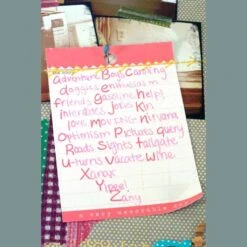 adventure Boys Camping
doggies enthusiasm
friends gasoline help!
interstates Jokes Kin
love moving nirvana
Optimism Pictures query
Roads Sights tailgate
U-turns Vacate Wine
Xanax
Yippee!
Zany